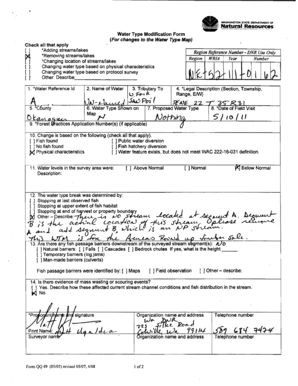 WASHINGTON STATE DEPARTMENT OF
Natural Resources
Water Type Modification Form
(For changes to the Water Type Map)
Check all that apply
*Adding streams/lakes
*Removing streams/lakes
*Changing location of streams/lakes
Changing water type based on physical characteristics
Changing water type based on protocol survey
Other: Describe
Region Reference Number - DNR Use Only
Region WRIA Year Number
N E - 5 2 - 1 1 - 0 1 6 2
1. *Water Reference Id
A
2. Name of Water
Un-Named
3. Tributary To
4. *Legal Description (Section, Township, Range, E/W)
22 T 35 R31
5. *County
Okanogan
6. *Water Type Shown on Map
N
7. Proposed Water Type
Nothing
8. *Date of Field Visit
5/10/11
9. *Forest Practices Application Number(s) (if applicable)
10. Change is based on the following (check all that apply).
[ ] Fish found [ ] Public water diversion
[ ] No fish found [ ] Fish hatchery diversion
[X] Physical characteristics [ ] Water feature exists, but does not meet WAC 222-16-031 definition
11. Water levels in the survey area were: [ ] Above Normal [ ] Normal [X] Below Normal
Description:
12. The water type break was determined by:
[ ] Stopping at last observed fish
[ ] Stopping at upper extent of fish habitat
[ ] Stopping at end of harvest or property boundary
[X] Other - Describe There is no stream located at segment A. Segment
B is the actual location of this stream. Please remove
A and add segment B, which is an NP stream.
13. Are there any fish passage barriers downstream of the surveyed stream segment(s). No
[ ] Natural barriers. [ ] Falls [ ] Cascades [ ] Bedrock chutes If yes, what is the height
[ ] Temporary barriers (log jams)
[ ] Man-made barriers (culverts)
Fish passage barriers were identified by: [ ] Maps [ ] Field observation [ ] Other – describe:
14. Is there evidence of mass wasting or scouring events?
[ ] Yes. Describe how these affected current stream channel conditions and fish distribution in the stream.
[X] No
signature
Print Name
Organization name and address
Road
Colville WA 99114
509 684 7474
Surveyor name
Organization name and address
1 of 2